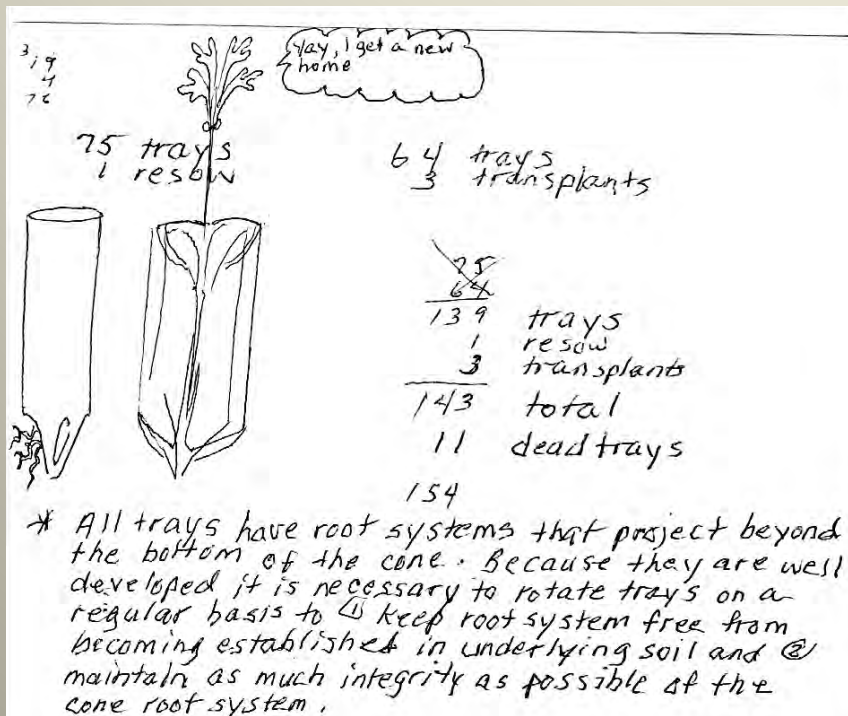 3 19
4
76
Yay, I get a new
home
75 trays
1 resow
64 trays
3 transplants
75
64
139 trays
1 resow
3 transplants
143 total
11 dead trays
154
* All trays have root systems that project beyond
the bottom of the cone. Because they are well
developed it is necessary to rotate trays on a
regular basis to ① keep root system free from
becoming established in underlying soil and ②
maintain as much integrity as possible of the
cone root system.